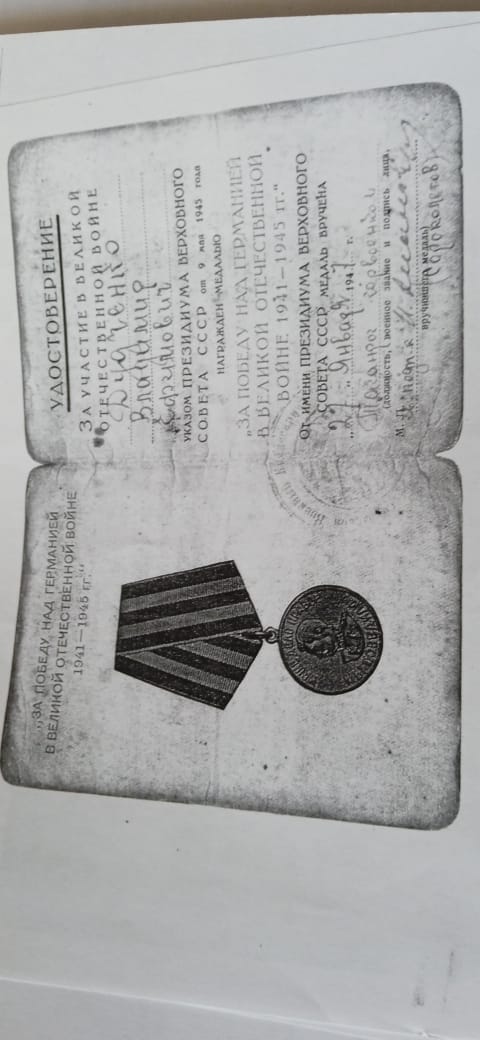 „ЗА ПОБЕДУ НАД ГЕРМАНИЕЙ
В ВЕЛИКОЙ ОТЕЧЕСТВЕННОЙ ВОЙНЕ
1941—1945 гг.“
УДОСТОВЕРЕНИЕ
ЗА УЧАСТИЕ В ВЕЛИКОЙ
ОТЕЧЕСТВЕННОЙ ВОЙНЕ
Дьяченко
Владимир
Ефимович
УКАЗОМ ПРЕЗИДИУМА ВЕРХОВНОГО
СОВЕТА СССР от 9 мая 1945 года
НАГРАЖДЕН МЕДАЛЬЮ
„ЗА ПОБЕДУ НАД ГЕРМАНИЕЙ
В ВЕЛИКОЙ ОТЕЧЕСТВЕННОЙ
ВОЙНЕ 1941—1945 гг.“
ОТ ИМЕНИ ПРЕЗИДИУМА ВЕРХОВНОГО
СОВЕТА СССР МЕДАЛЬ ВРУЧЕНА
Января 194 г.
(должность, военное звание и подпись лица,
М. П.
вручившего медаль)